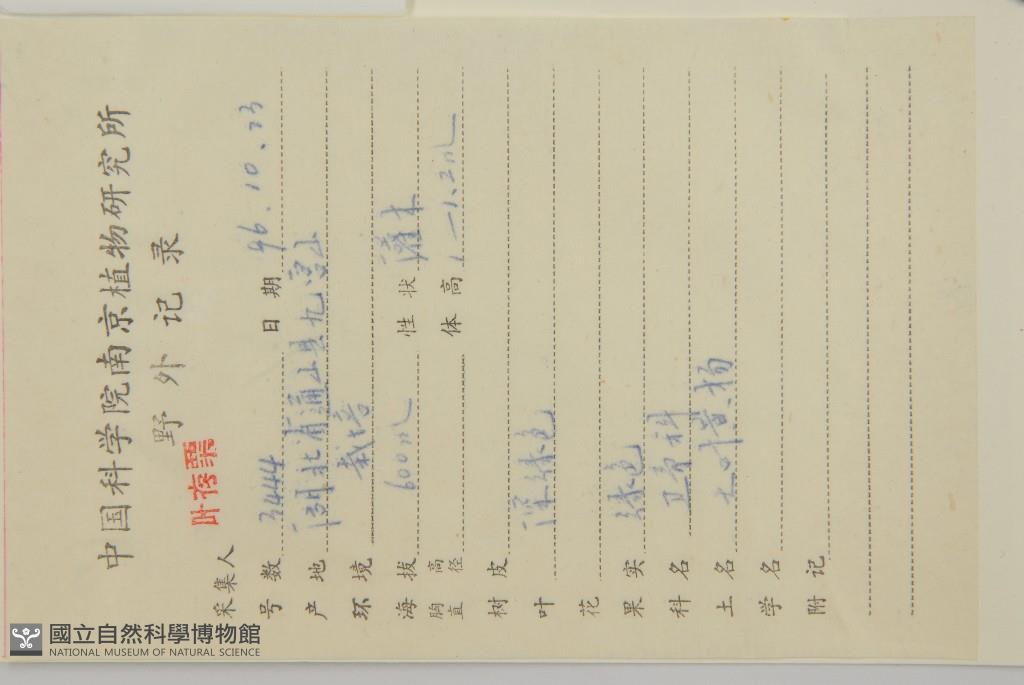 中国科学院南京植物研究所
野外记录
采集人 叶存粟
号数 3444 日期 96.10.23
产地 湖北省通山县九宫山
环境 栽培
海拔 600m 性状 灌木
胸高直径 体高 1—1.2m
树皮
叶 深绿色
花
果实 绿色
科名 卫矛科
土名 大叶黄杨
学名
附记
國立自然科學博物館
NATIONAL MUSEUM OF NATURAL SCIENCE